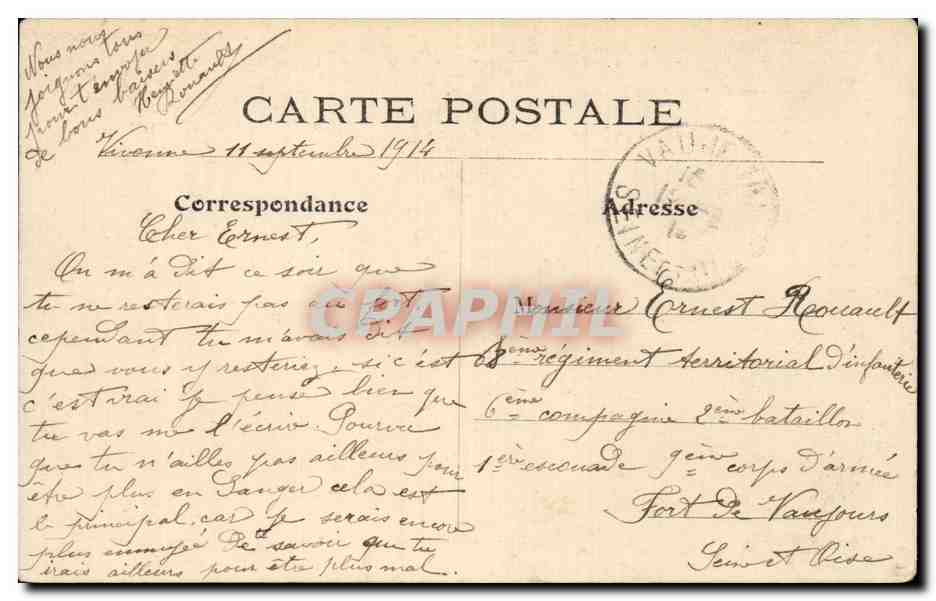 Nous nous
joignons tous
pour t'envoyer
de bons baisers
Henriette
Rouault
CARTE POSTALE
Vivonne 11 septembre 1914
Correspondance
Cher Ernest,
On m'a dit ce soir que
tu ne resterais pas au fort
cependant tu m'avais dit
que vous y resteriez, si c'est
c'est vrai je pense bien que
tu vas me l'écrire. Pourvu
que tu n'ailles pas ailleurs pour
être plus en danger cela est
le principal, car je serais encore
plus ennuyée de te savoir que tu
irais ailleurs pour être plus mal.
Adresse
Monsieur Ernest Rouault
68ème régiment territorial d'infanterie
6ème compagnie 2ème bataillon
1ère escouade 9ème corps d'armée
Fort de Vaujours
Seine et Oise
CPAPHIL